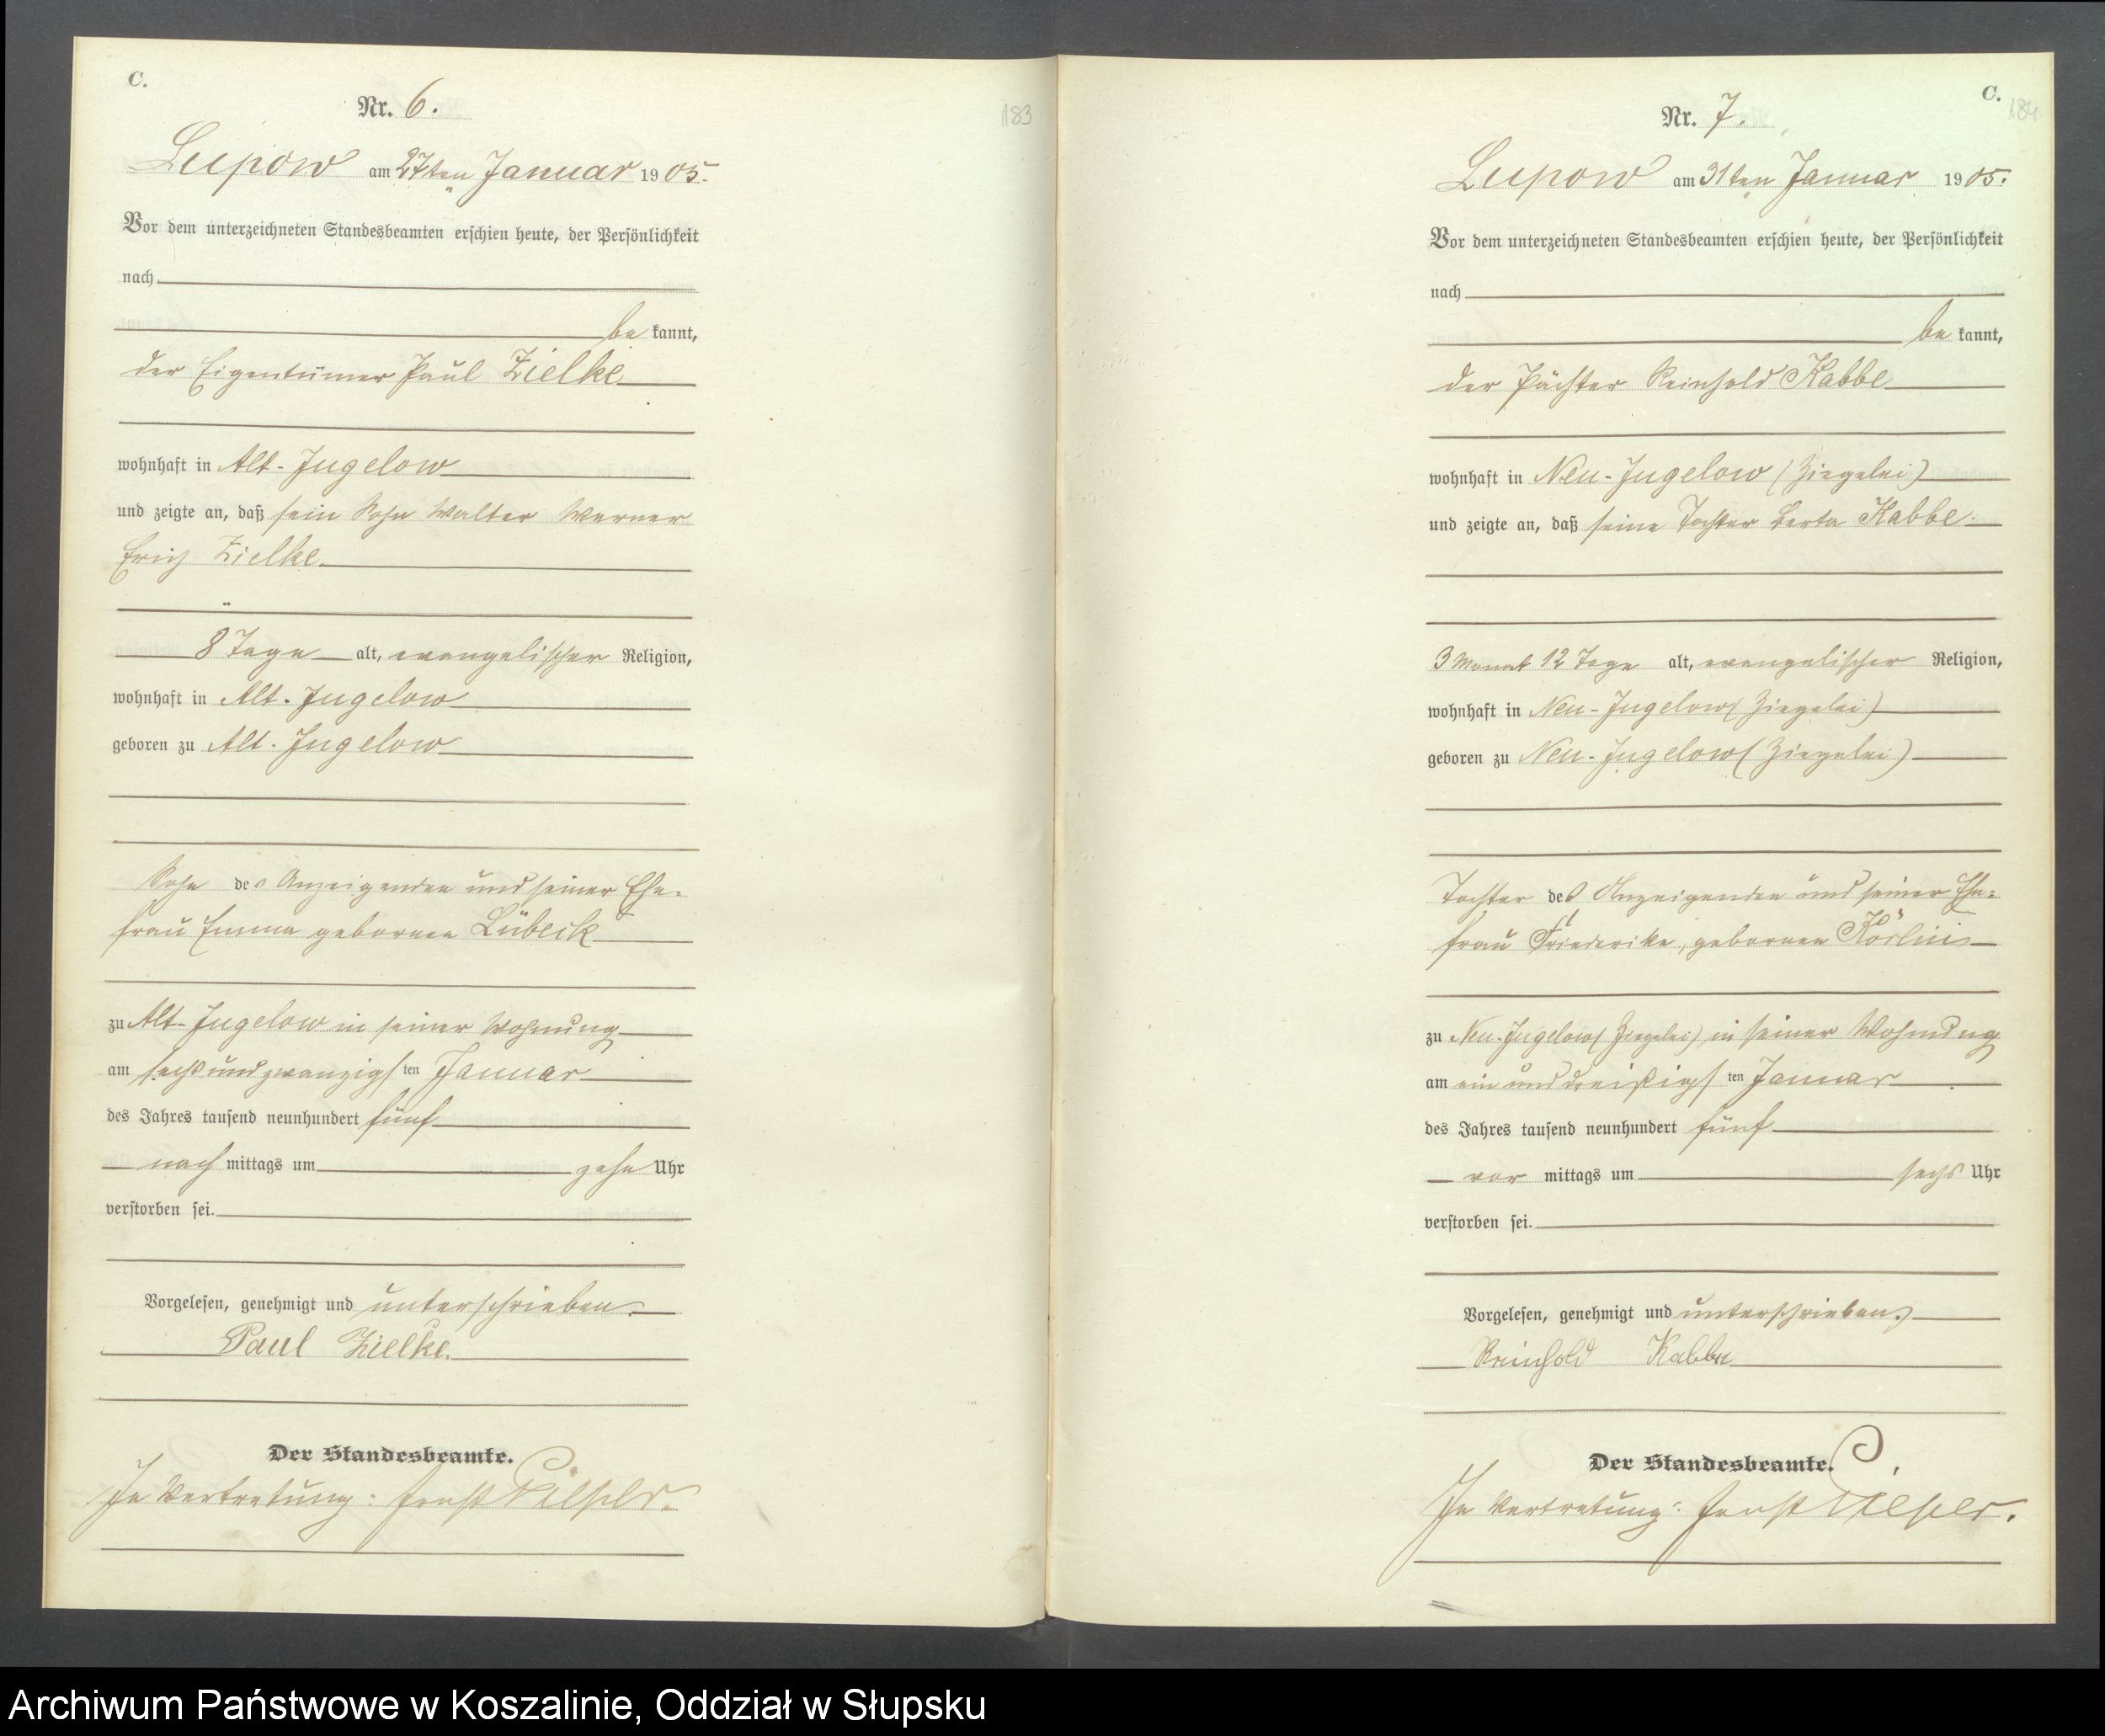 C.
Nr. 6.
183
Lupow am 27ten Januar 1905.
Vor dem unterzeichneten Standesbeamten erschien heute, der Persönlichkeit
nach
be kannt,
der Eigentümer Paul Zielke
wohnhaft in Alt-Jugelow
und zeigte an, daß sein Sohn Walter Werner
Erich Zielke.
8 Tage alt, evangelischer Religion,
wohnhaft in Alt-Jugelow
geboren zu Alt-Jugelow
Sohn des Anzeigenden und seiner Ehe-
frau Emma geborenen Lübeck
zu Alt-Jugelow in seiner Wohnung
am sechsundzwanzigsten Januar
des Jahres tausend neunhundert fünf
nach mittags um zehn Uhr
verstorben sei.
Vorgelesen, genehmigt und unterschrieben.
Paul Zielke.
Der Standesbeamte.
In Vertretung: Ernst
C.
184
Nr. 7.
Lupow am 31ten Januar 1905.
Vor dem unterzeichneten Standesbeamten erschien heute, der Persönlichkeit
nach
be kannt,
der Pächter Reinhold Kabbe
wohnhaft in Neu-Jugelow (Ziegelei)
und zeigte an, daß seine Tochter Berta Kabbe.
3 Monat 12 Tage alt, evangelischer Religion,
wohnhaft in Neu-Jugelow (Ziegelei)
geboren zu Neu-Jugelow (Ziegelei)
Tochter des Anzeigenden und seiner Ehe-
frau Friederike, geborenen
zu Neu-Jugelow (Ziegelei) in seiner Wohnung
am ein und dreißigsten Januar
des Jahres tausend neunhundert fünf
vor mittags um sechs Uhr
verstorben sei.
Vorgelesen, genehmigt und unterschrieben.
Reinhold Kabbe
Der Standesbeamte.
In Vertretung: Ernst
Archiwum Państwowe w Koszalinie, Oddział w Słupsku